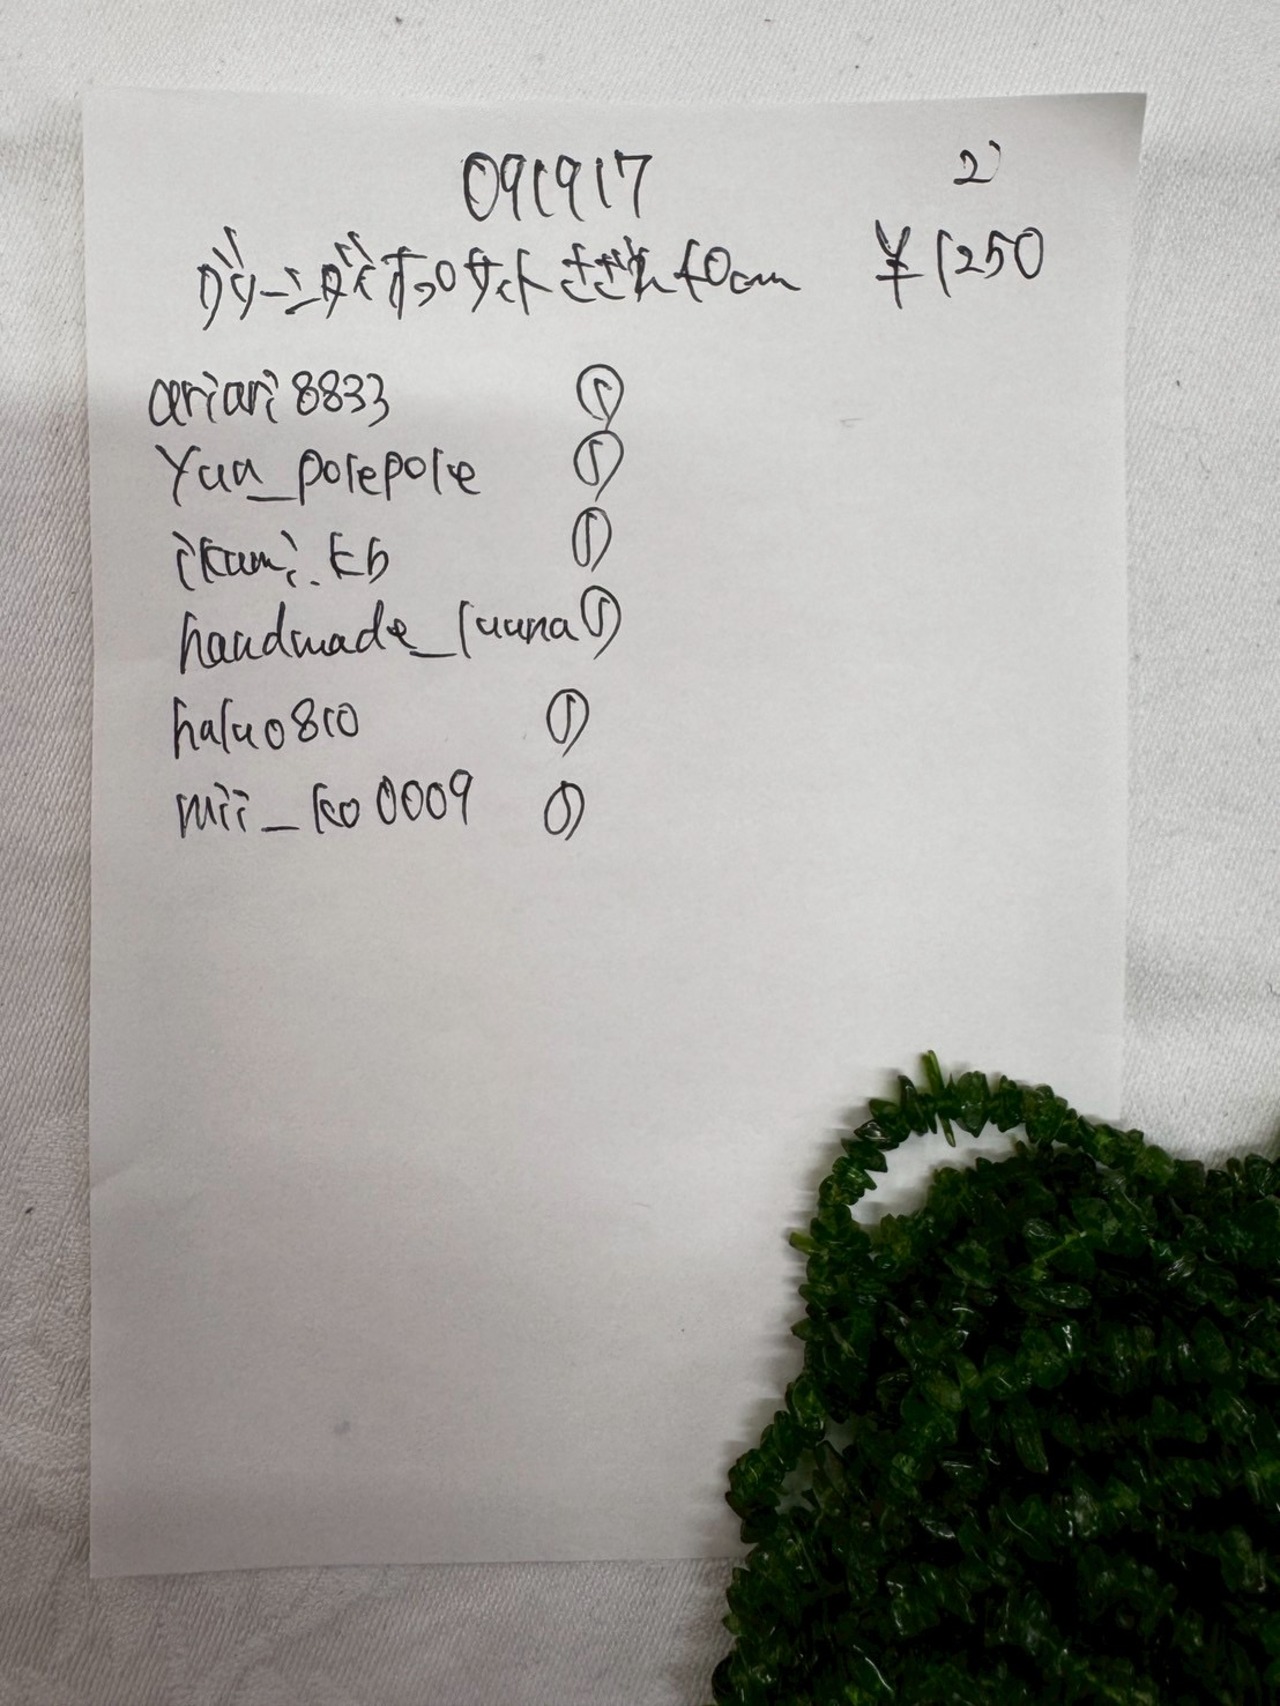 091917 2)
グリーンダイオプサイトさざれ40cm ¥1250
ariari8833 ①
yuu_polepole ①
ikumi.kb ①
handmade_luuna ①
halu0810 ①
mii_ko0009 ①